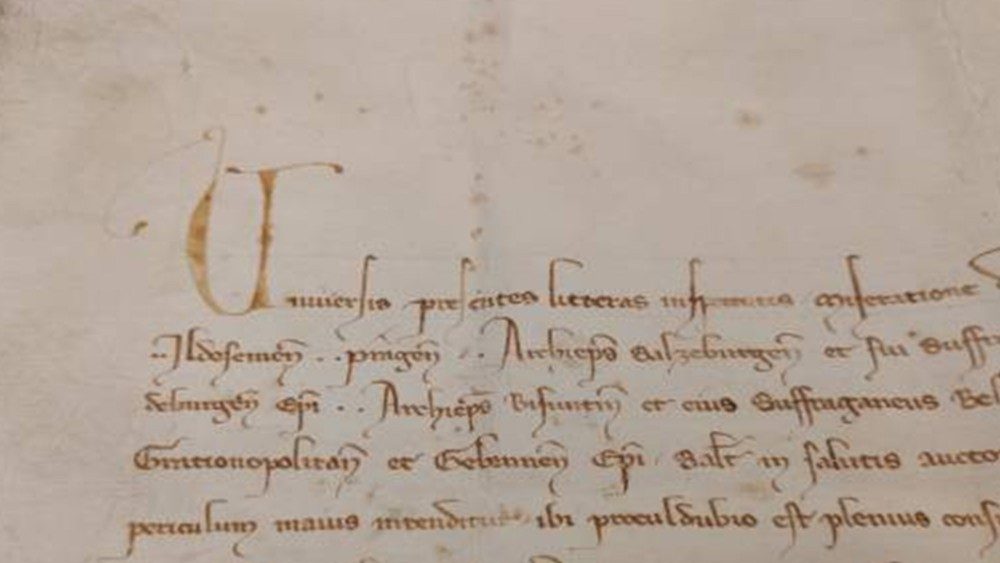 Vniuersis presentes litteras inspecturis consecratione
.. Ildosemen̄ .. pragen̄ .. Archiep̄s Salzeburgen̄ et sui Suffr
deburgen̄ Ep̄i .. Archiep̄s Bisuntin̄ et eius Suffraganeus Bel
Gracionopolitan̄ et Gebennen̄ Ep̄i salt̄ in salutis aucto
periculum maius intenditur ibi proculdubio est plenius cons